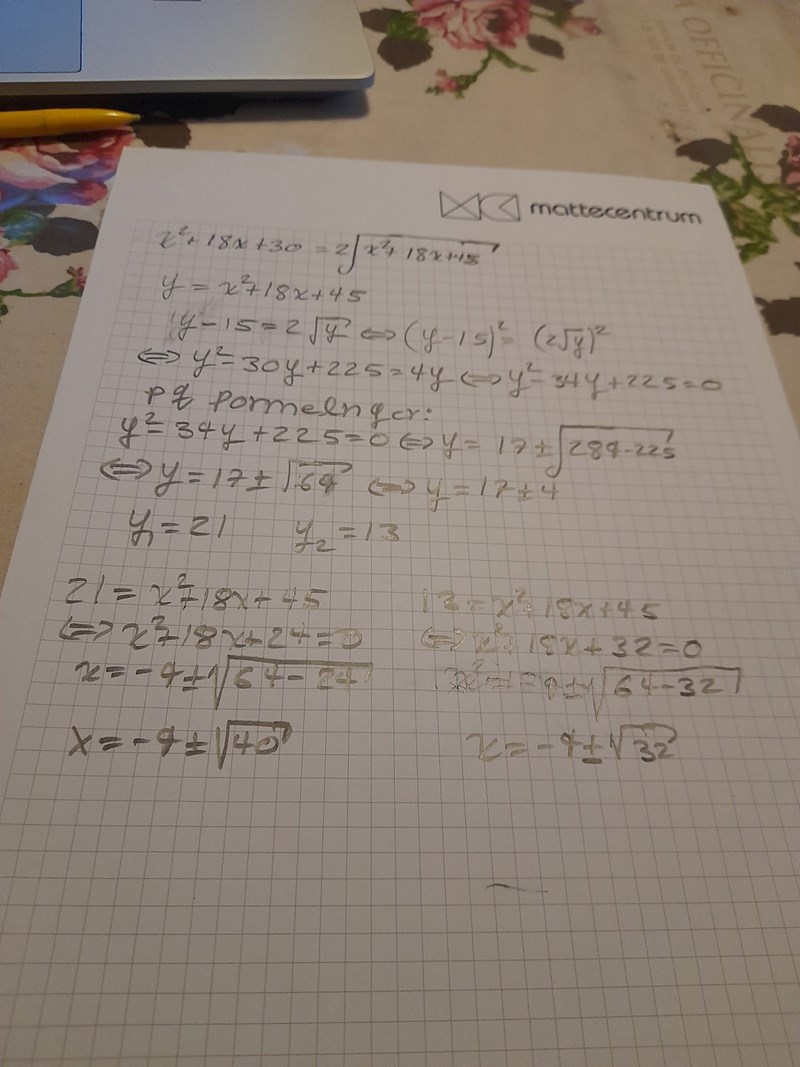 A OFFICINAL
mattecentrum
x²+18x+30 = 2√x²+18x+45
y = x²+18x+45
y-15=2√y ⇔ (y-15)² = (2√y)²
⇔ y²-30y+225=4y ⇔ y²-34y+225=0
pq formeln ger:
y²-34y+225=0 ⇔ y = 17±√289-225
⇔ y=17±√64 ⇔ y=17±4
y₁=21 y₂=13
21=x²+18x+45
⇔ x²+18x+24=0
x=-9±√64-24
x=-9±√40
13=x²+18x+45
⇔ x²+18x+32=0
√64-32
x=-9±√32